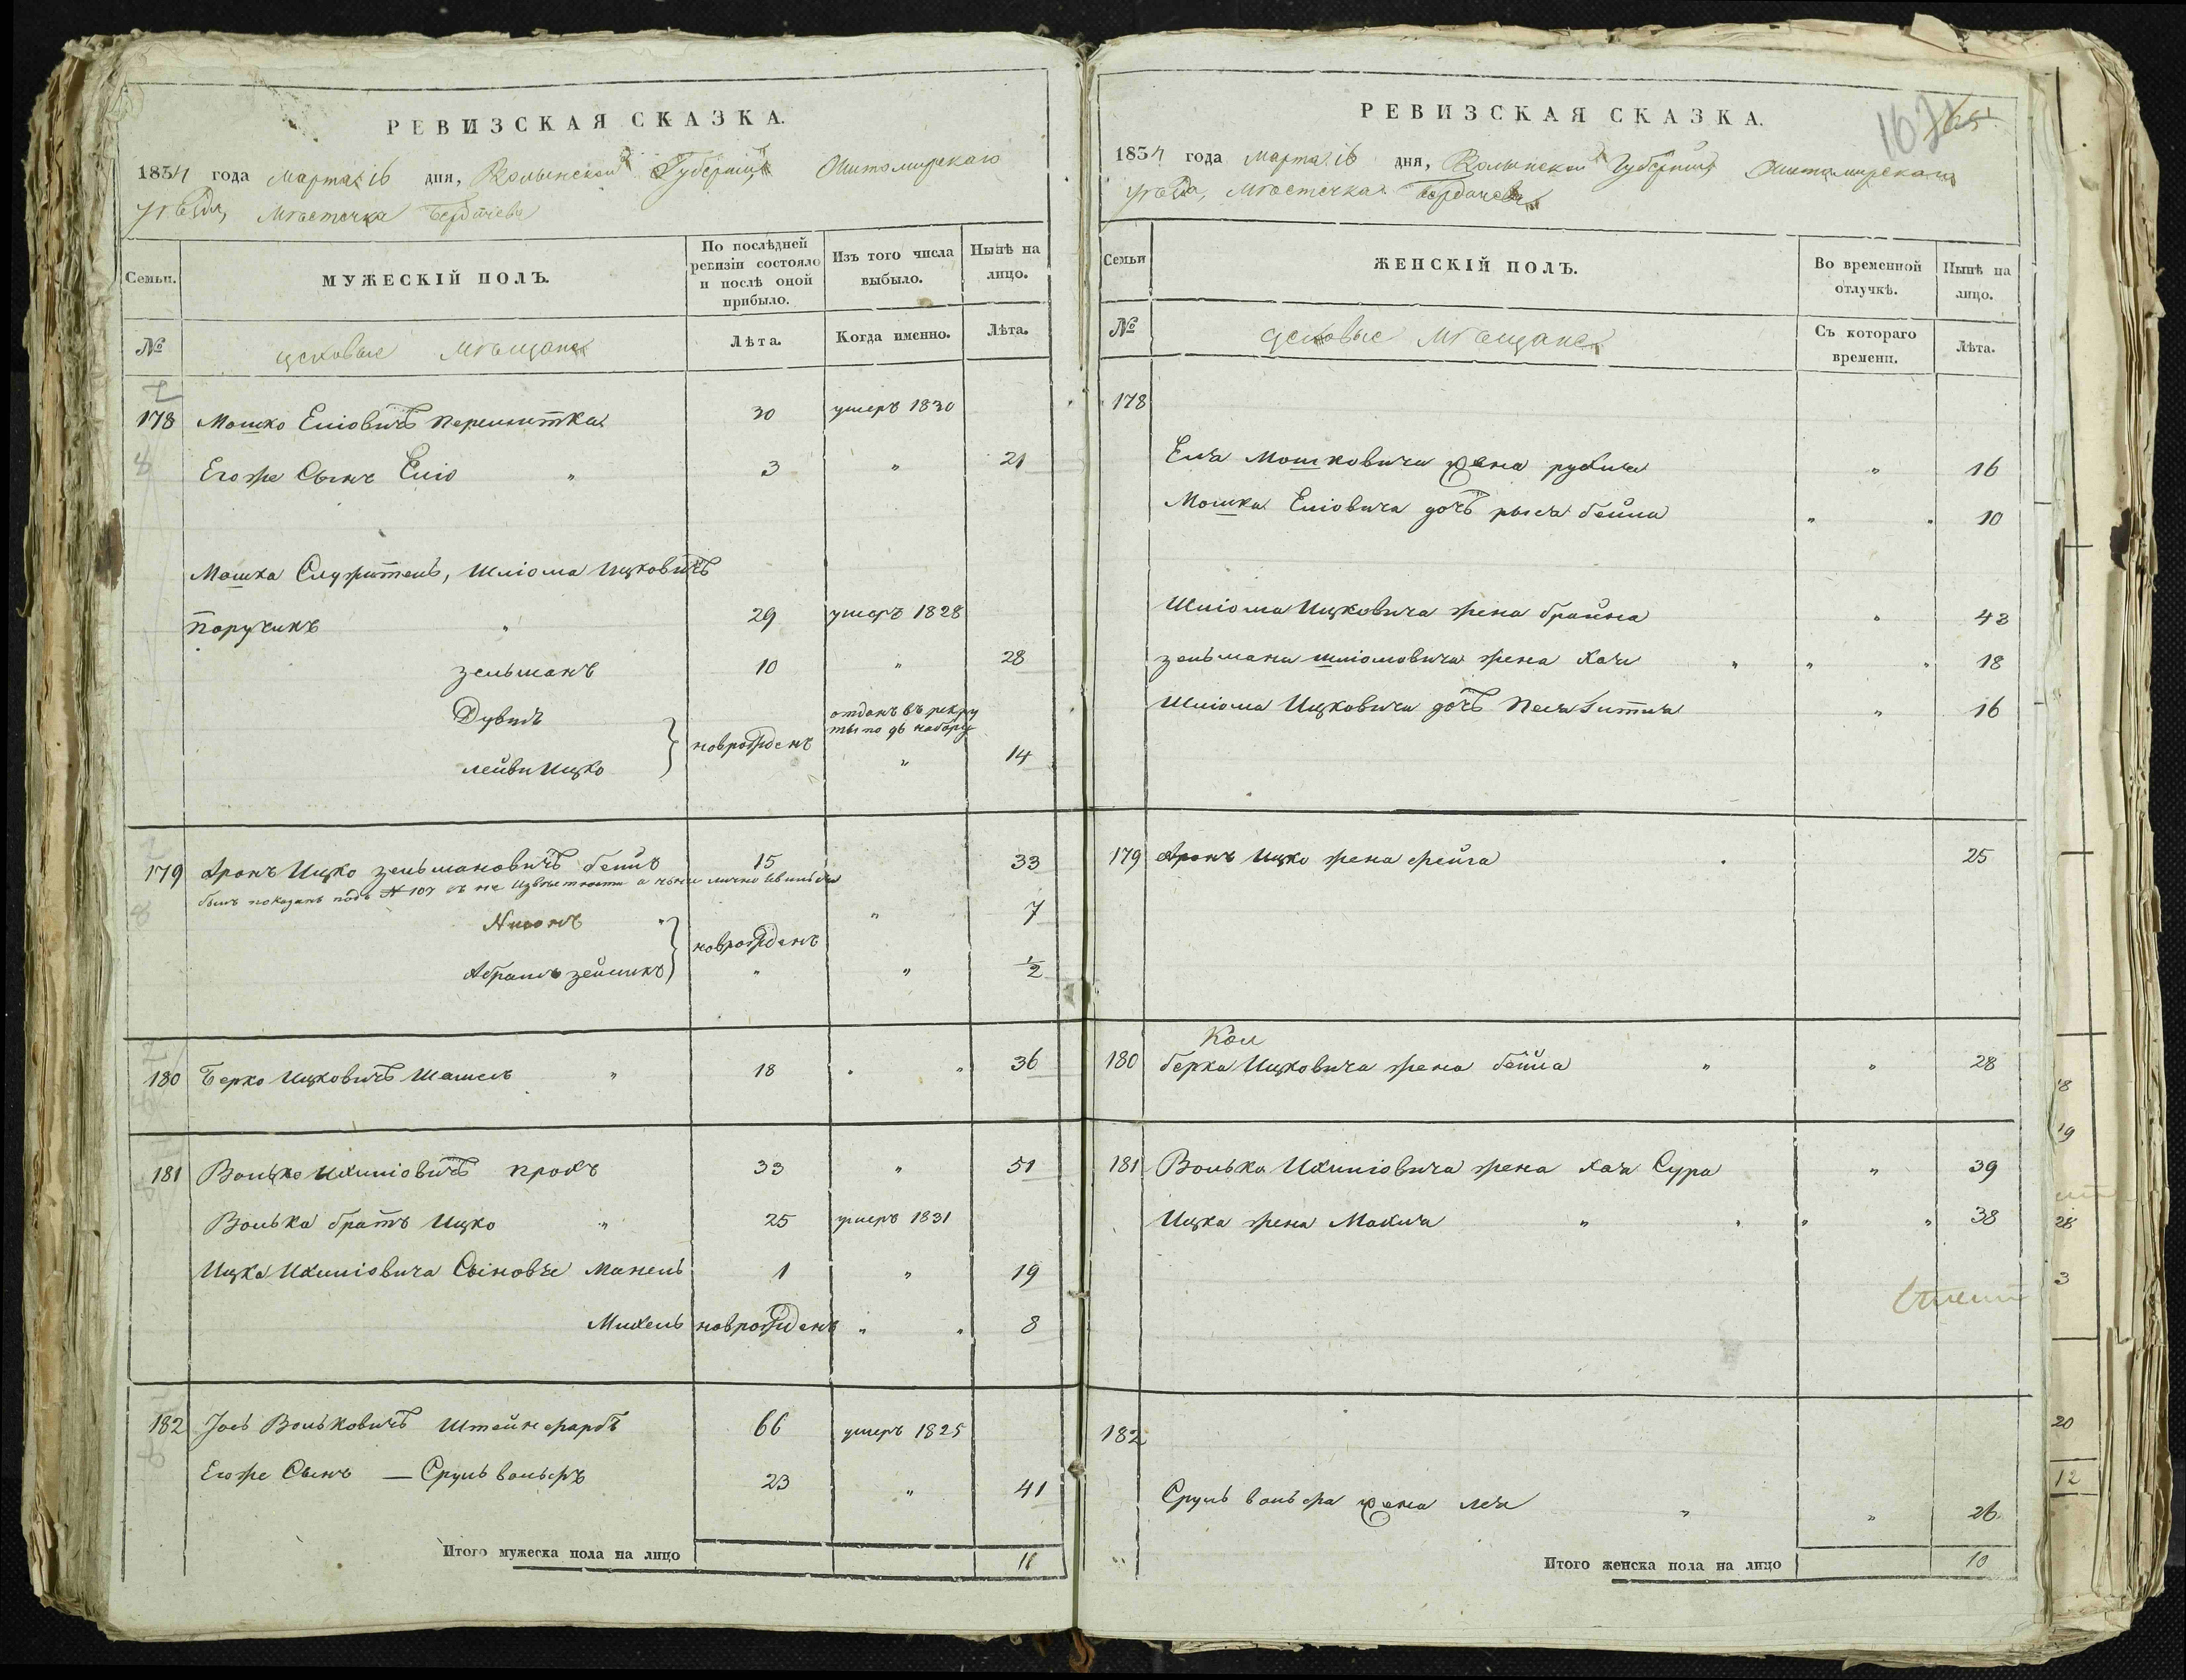 РЕВИЗСКАЯ СКАЗКА.
1834 года Марта 16 дня, Волынской Губерніи Житомирскаго
уѣзда, Мѣстечка Бердичева
Семьи.
МУЖЕСКІЙ ПОЛЪ.
По послѣдней ревизіи состояло и послѣ оной прибыло.
Изъ того числа выбыло.
Нынѣ на лицо.
№
цеховые мѣщане
Лѣта.
Когда именно.
Лѣта.
178 Мошко Еліовичъ 30 умеръ 1830
Егоже Сынъ Еліо " 3 " 21
Мошка Служитель, Шліома Ицковичъ
" 29 умеръ 1828
зельманъ 10 " 28
Дувидъ новрожденъ отданъ въ рекру
ты по 96 набору
лейви Ицко " 14
179 Аронъ Ицко зельмановичъ 15 33
былъ показанъ подъ № 107 въ не извѣстности а нынѣ лично
" новрожденъ " 7
Абрамъ " " 1/2
180 Берко Ицковичъ " 18 " " 36
181 Волько прокъ 33 " 51
Волька братъ Ицко " 25 умеръ 1831
Ицка Сыновье Манель 1 " 19
Михель новрожденъ " " 8
182 Іось Вольковичъ Штейнфарбъ 66 умеръ 1825
Егоже Сынъ — Сруль вольфъ 23 " 41
Итого мужеска пола на лицо 11
РЕВИЗСКАЯ СКАЗКА.
1834 года Марта 16 дня, Волынской Губерніи Житомирскаго
уѣзда, Мѣстечка Бердичева
Семьи
ЖЕНСКІЙ ПОЛЪ.
Во временной отлучкѣ.
Нынѣ на лицо.
№
цеховые мѣщане
Съ котораго времени.
Лѣта.
178
Мошковича жена рухля " 16
Мошка Еліовича дочь рыся бейла " " 10
Шліома Ицковича жена брайна " 43
зельмана шліомовича жена хая " " " 18
Шліома Ицковича дочь " 16
179 Аронъ Ицко жена фейга 25
180 берка Ицковича жена бейла " " 28
181 Волька жена хая Сура " 39
Ицка жена Махля " " " " 38
182
Сруль вольфа жена лея " " 26
Итого женска пола на лицо 10
18
19
28
3
20
12